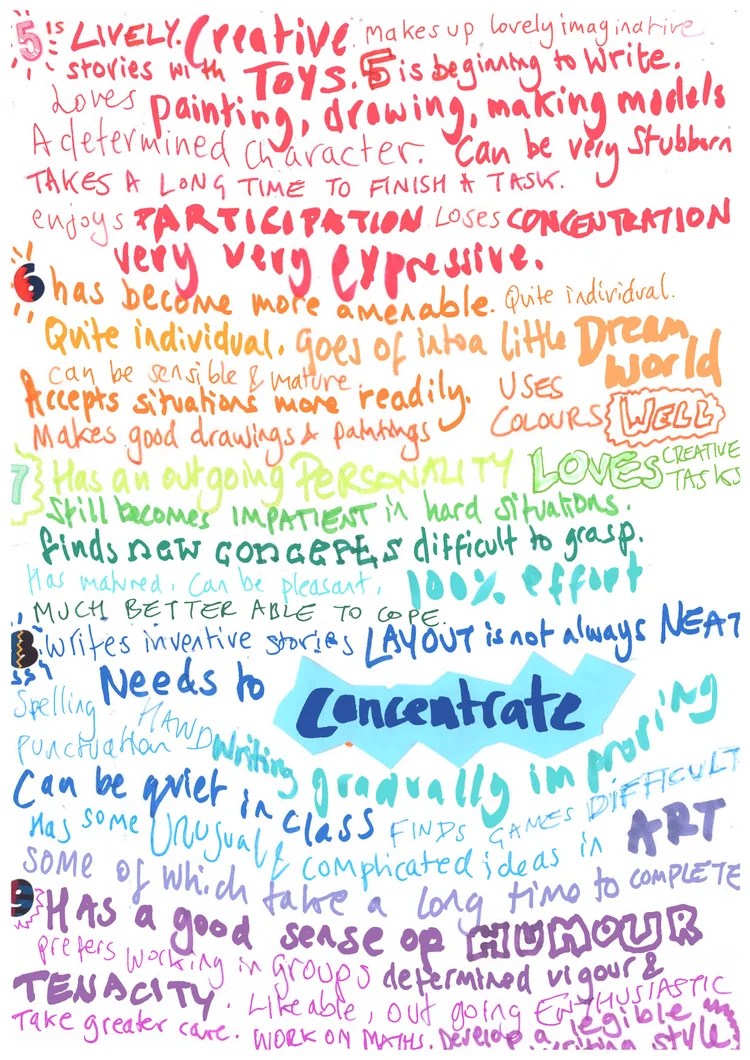 5 is LIVELY. Creative. Makes up lovely imaginative
stories with Toys. 5 is beginning to write.
Loves painting, drawing, making models
A determined character. Can be very Stubborn
TAKES A LONG TIME TO FINISH A TASK.
enjoys PARTICIPATION Loses CONCENTRATION
very very expressive.
6 has become more amenable. Quite individual.
Quite individual. goes of into a little Dream World
can be sensible & mature.
Accepts situations more readily. USES
Makes good drawings & paintings COLOURS WELL
7 Has an outgoing PERSONALITY LOVES CREATIVE TASKS
Still becomes IMPATIENT in hard situations.
finds new concepts difficult to grasp.
Has matured. Can be pleasant. 100% effort
MUCH BETTER ABLE TO COPE.
8 Writes inventive stories LAYOUT is not always NEAT
Needs to Concentrate
Spelling
Punctuation HANDwriting gradually improving
Can be quiet in class FINDS GAMES DIFFICULT
Has some Unusual & complicated ideas in ART
SOME of which take a long time to COMPLETE
9 HAS a good sense of HUMOUR
prefers working in groups determined vigour &
TENACITY. Likeable, out going ENTHUSIASTIC
Take greater care. WORK ON MATHS. Develop a legible
writing style